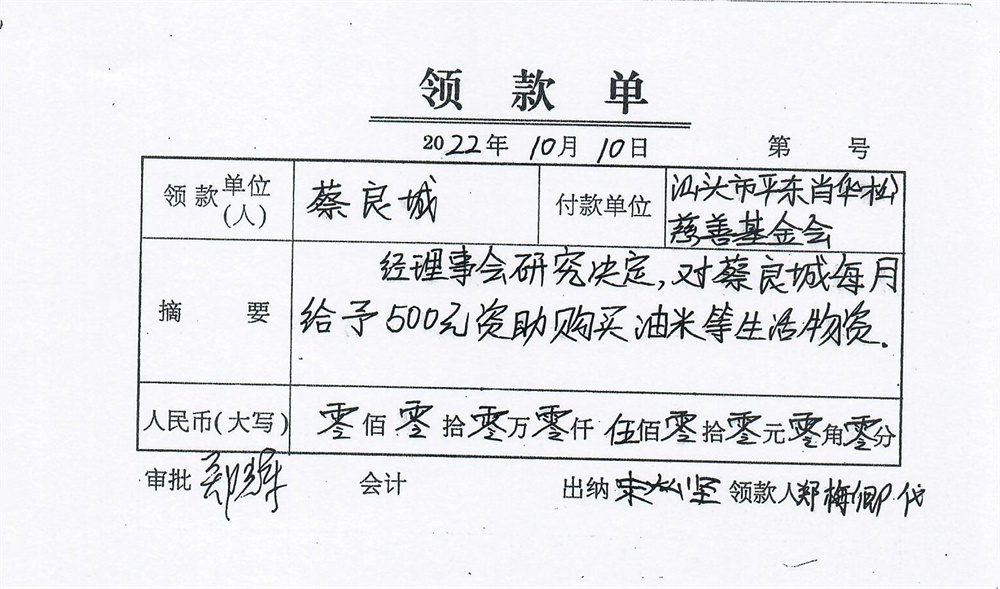 领款单
2022年 10月 10日 第 号
领款单位(人) 蔡良城 付款单位 汕头市平东肖华松慈善基金会
摘要 经理事会研究决定,对蔡良城每月
给予500元资助购买油米等生活物资.
人民币(大写) 零佰零拾零万零仟伍佰零拾零元零角零分
审批 会计 出纳 领款人郑梅卿代